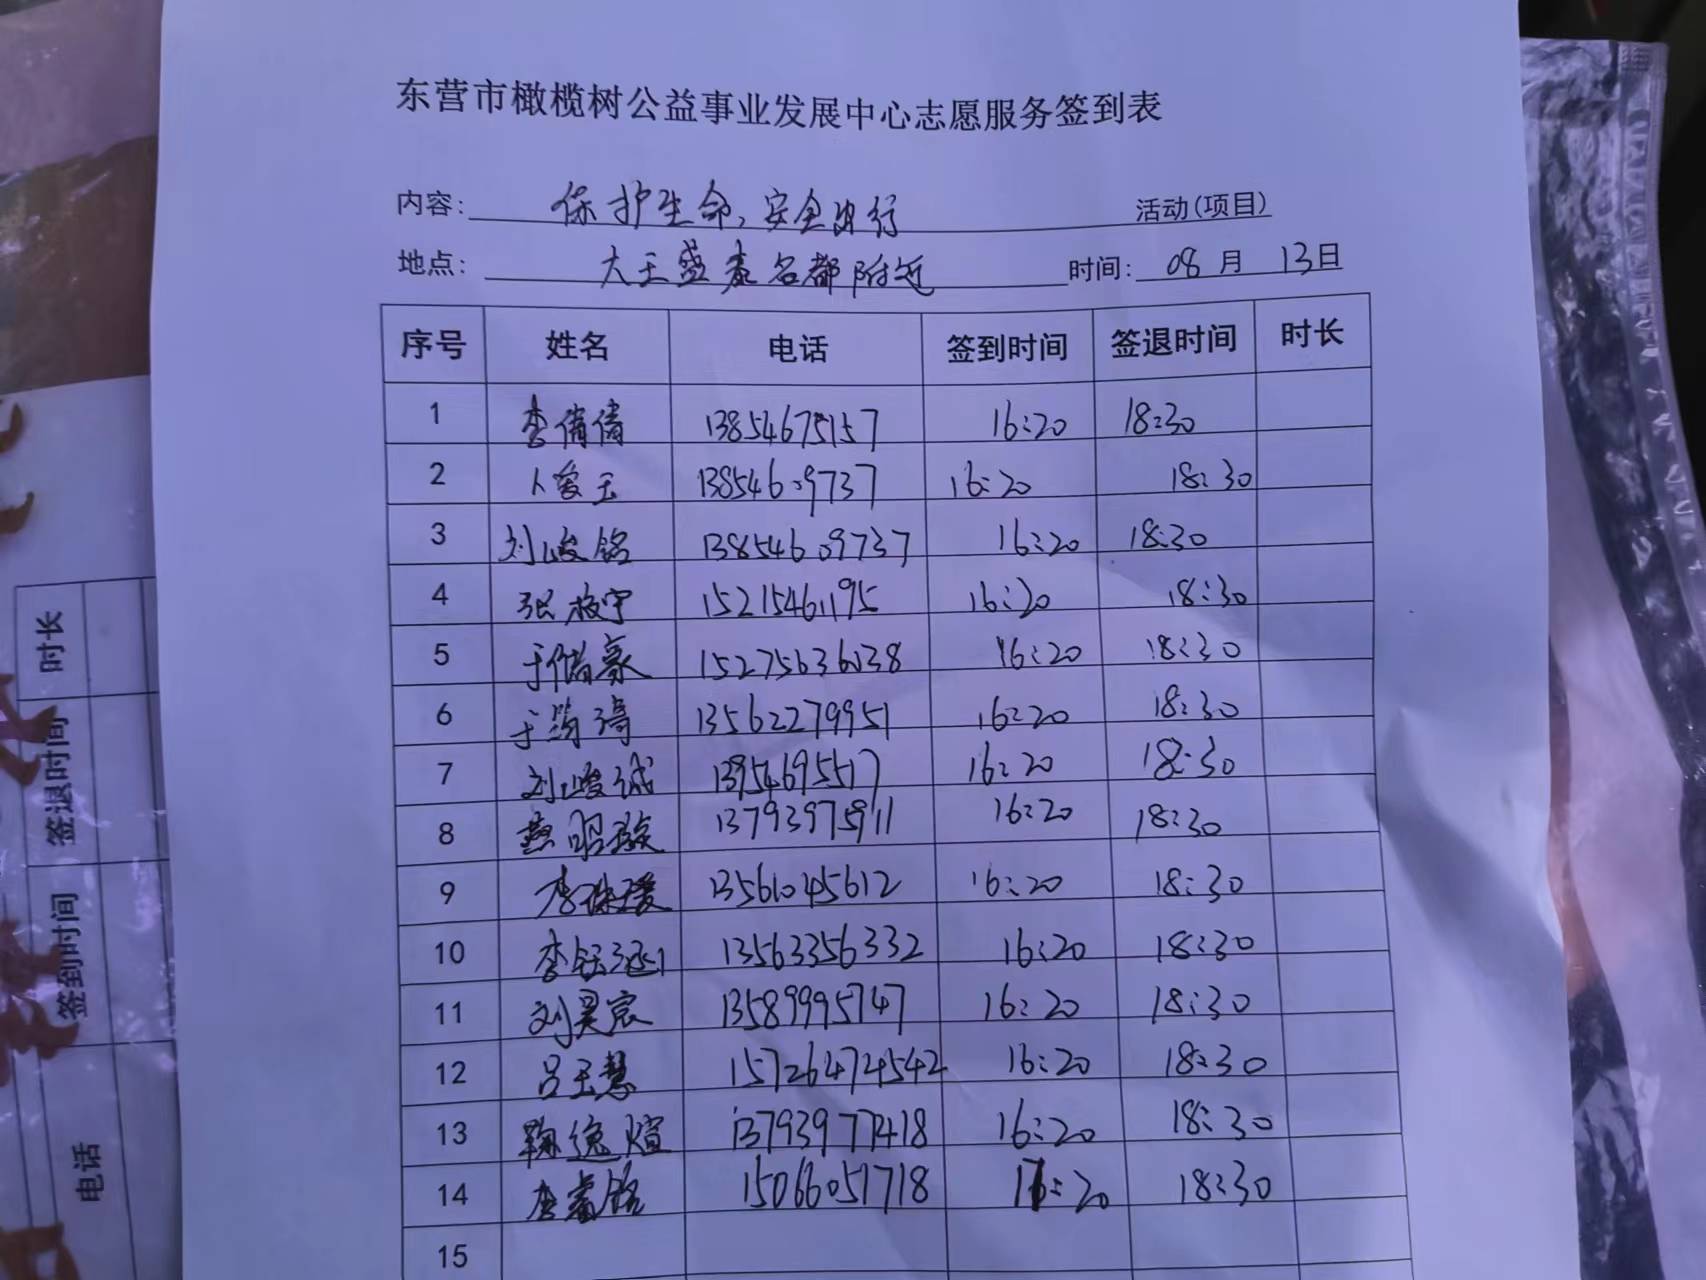 东营市橄榄树公益事业发展中心志愿服务签到表
内容: 保护生命,安全出行 活动(项目)
地点: 大王盛泰名都附近 时间: 08月 13日
序号 姓名 电话 签到时间 签退时间 时长
1 李倩倩 13854675157 16:20 18:30
2 卜爱玉 13854609737 16:20 18:30
3 刘峻铭 13854609737 16:20 18:30
4 张 宇 15215461195 16:20 18:30
5 于储豪 15275636038 16:20 18:30
6 于筠琦 13562279951 16:20 18:30
7 刘峻诚 16:20 18:30
8 燕昭璇 13793975911 16:20 18:30
9 李 瑷 13561045612 16:20 18:30
10 李钰涵 13563356332 16:20 18:30
11 刘昊宸 13589995747 16:20 18:30
12 吕玉慧 15726474542 16:20 18:30
13 鞠逸煊 13793977418 16:20 18:30
14 李睿铭 15066051718 16:20 18:30
15
时长
签退时间
签到时间
电话